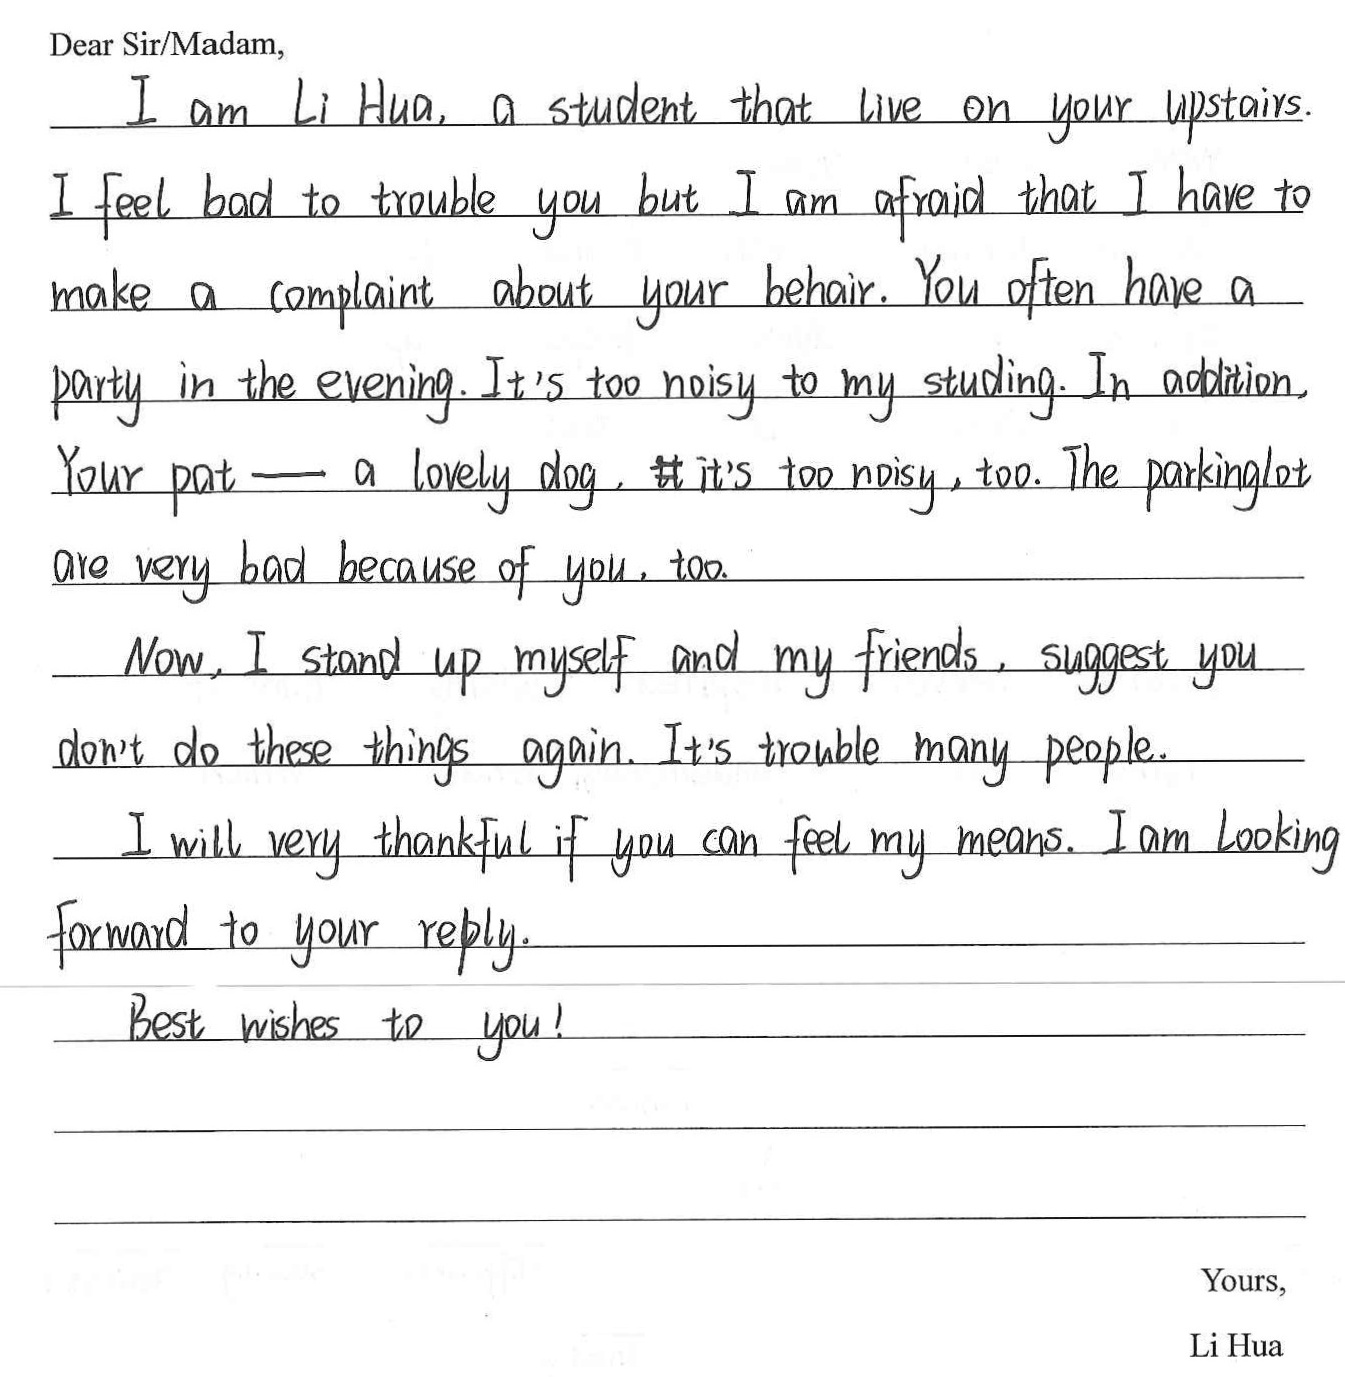 Dear Sir/Madam,
I am Li Hua, a student that live on your upstairs.
I feel bad to trouble you but I am afraid that I have to
make a complaint about your behair. You often have a
party in the evening. It's too noisy to my studing. In addition,
Your pat — a lovely dog, it's too noisy, too. The parkinglot
are very bad because of you, too.
Now, I stand up myself and my friends, suggest you
don't do these things again. It's trouble many people.
I will very thankful if you can feel my means. I am Looking
forward to your reply.
Best wishes to you!
Yours,
Li Hua